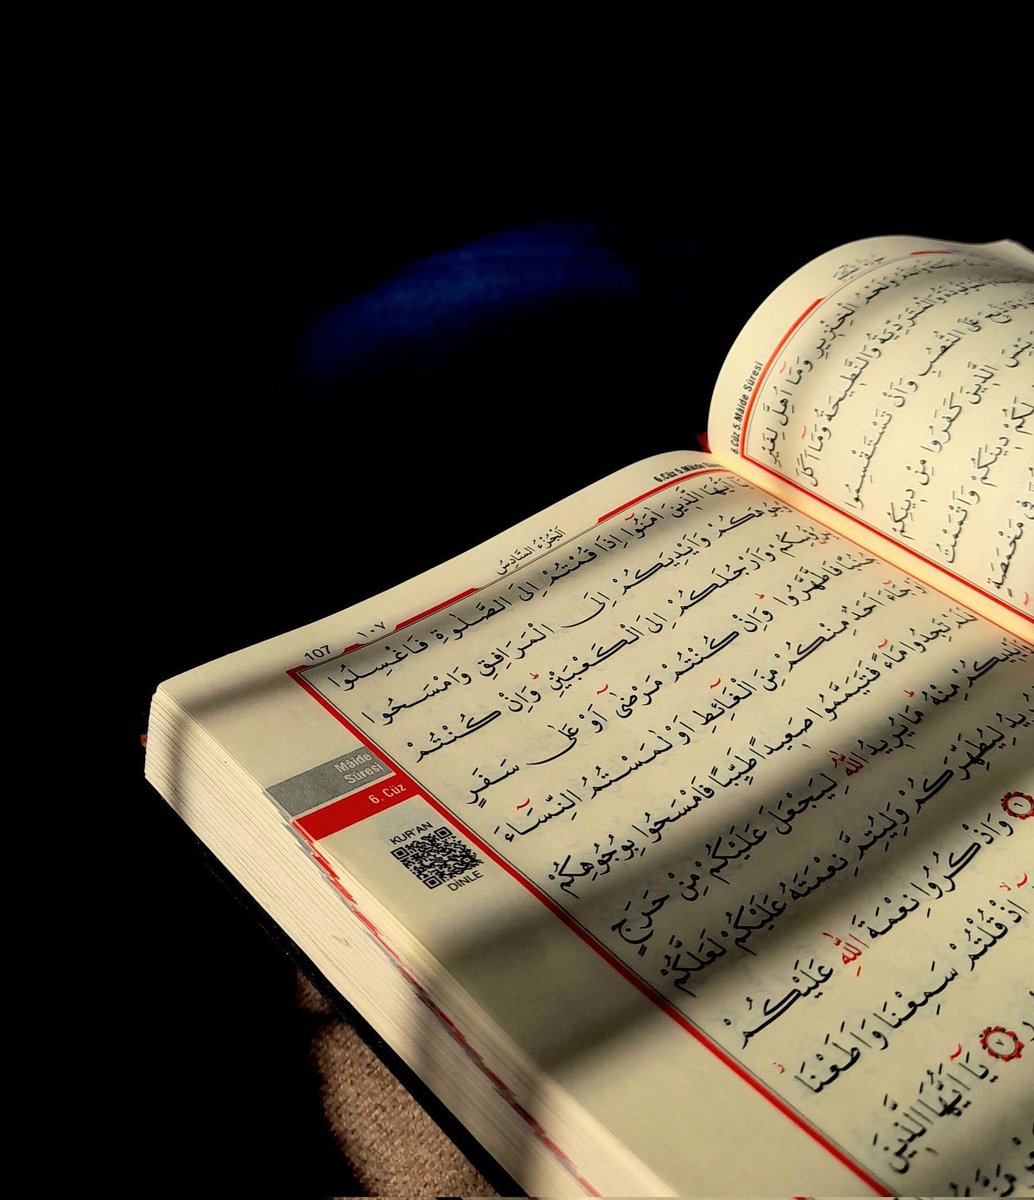 6.Cüz 5.Mâide Sûresi
وَلَحْمُ الْخِنْزِيرِ وَمَٓا اُهِلَّ لِغَيْرِ
وَالْمُتَرَدِّيَةُ وَالنَّطِيحَةُ وَمَٓا اَكَلَ
عَلَى النُّصُبِ وَاَنْ تَسْتَقْسِمُوا
يَئِسَ الَّذِينَ كَفَرُوا مِنْ دِينِكُمْ
لَكُمْ دِينَكُمْ وَاَتْمَمْتُ
فِي مَخْمَصَةٍ
6.Cüz 5.Mâide
اَلْجُزْءُ السَّادِسُ
107 ١٠٧
اَيُّهَا الَّذِينَ اٰمَنُٓوا اِذَا قُمْتُمْ اِلَى الصَّلٰوةِ فَاغْسِلُوا
وُجُوهَكُمْ وَاَيْدِيَكُمْ اِلَى الْمَرَافِقِ وَامْسَحُوا
وَاَرْجُلَكُمْ اِلَى الْكَعْبَيْنِۜ وَاِنْ كُنْتُمْ
جُنُبًا فَاطَّهَّرُواۜ وَاِنْ كُنْتُمْ مَرْضٰٓى اَوْ عَلٰى سَفَرٍ
اَوْ جَٓاءَ اَحَدٌ مِنْكُمْ مِنَ الْغَٓائِطِ اَوْ لٰمَسْتُمُ النِّسَٓاءَ
فَلَمْ تَجِدُوا مَٓاءً فَتَيَمَّمُوا صَعِيدًا طَيِّبًا فَامْسَحُوا بِوُجُوهِكُمْ
وَاَيْدِيكُمْ مِنْهُۜ مَا يُرِيدُ اللّٰهُ لِيَجْعَلَ عَلَيْكُمْ مِنْ حَرَجٍ
يُرِيدُ لِيُطَهِّرَكُمْ وَلِيُتِمَّ نِعْمَتَهُ عَلَيْكُمْ لَعَلَّكُمْ
٦ وَاذْكُرُوا نِعْمَةَ اللّٰهِ عَلَيْكُمْ
اِذْ قُلْتُمْ سَمِعْنَا وَاَطَعْنَا
٧ يَٓا اَيُّهَا الَّذِينَ
Mâide
Sûresi
6. Cüz
KUR'AN
DINLE